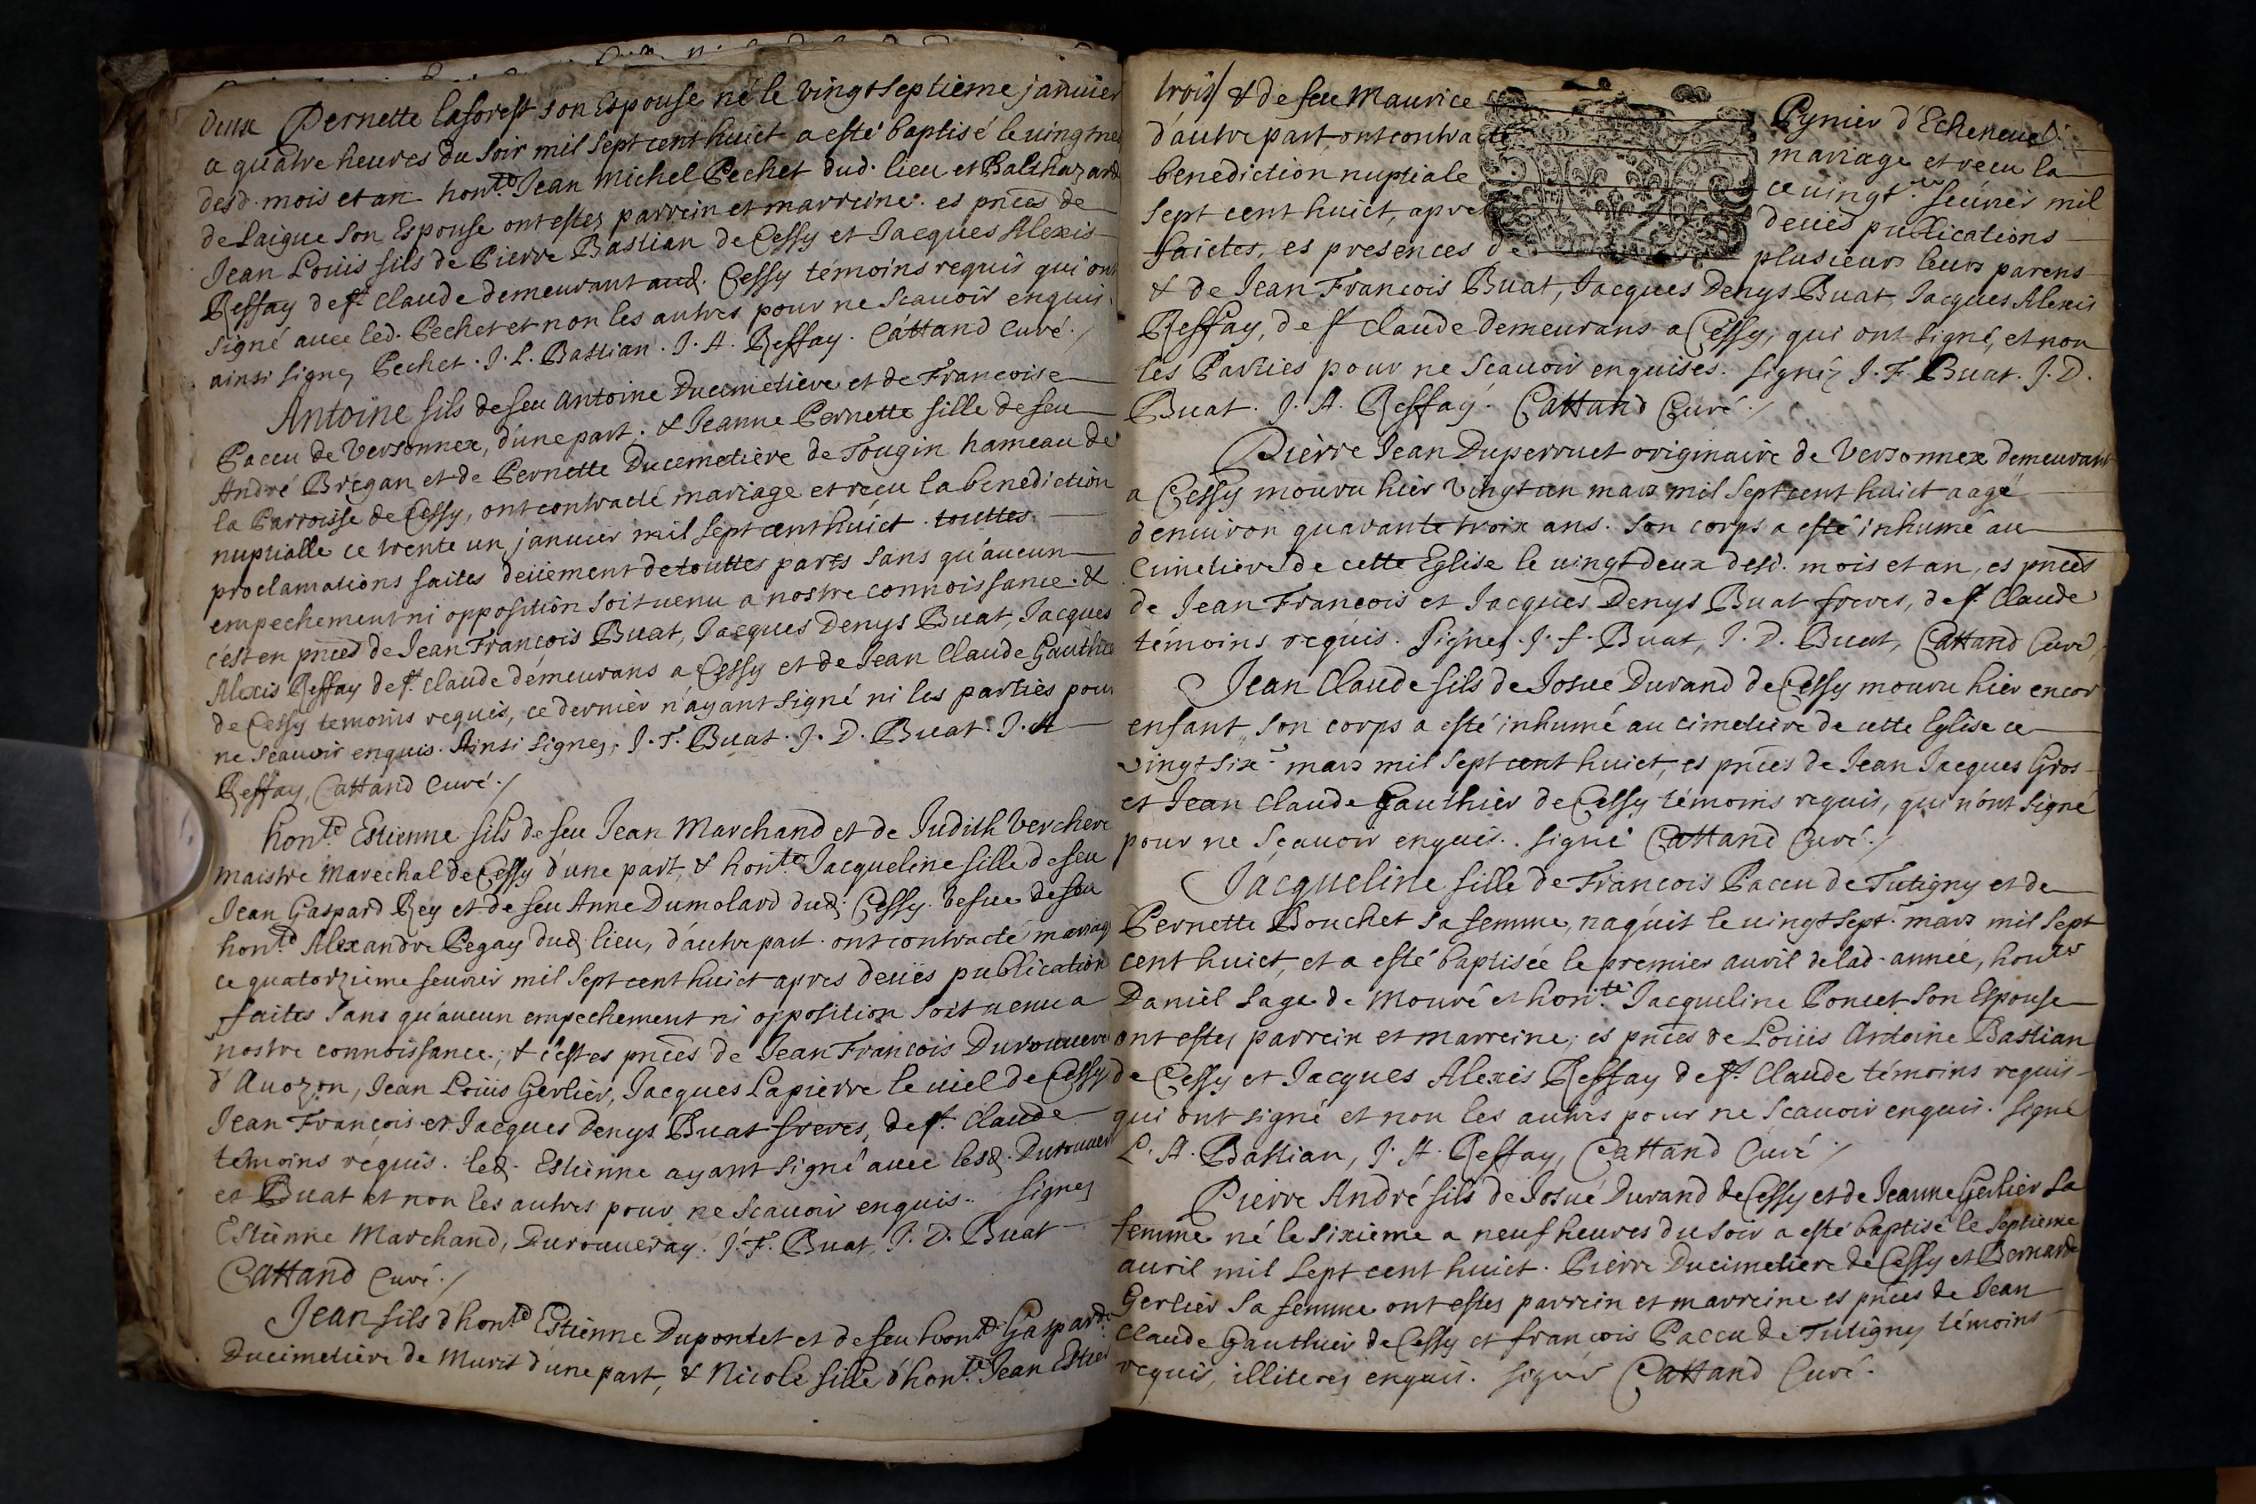 deux Pernette laforest son Espouse né le vingt septieme januier
a quatre heures du soir mil sept cent huict a esté baptisé le uingt
desd. mois et an hon.te Jean Michel Pechet dud. lieu et Balthazard
de Laigue son Espouse ont estez parrein et marreine. es pnces de
Jean Loüis fils de Pierre Bastian de Cessy et Jacques Alexis
Reffay de st Claude demeurant aud. Cessy témoins requis qui ont
signé auec led. Pechet et non les autres pour ne scauoir enquis.
ainsi signez Pechet. J. L. Bastian. J. A. Reffay. Cattand Curé./
Antoine fils de feu Antoine Ducimetiere et de Francoise
Paccu de Versonnex, d'une part. & Jeanne Pernette fille de feu
André Brégan et de Pernette Ducemetiere de Tougin hameau de
la Parroisse de Cessy, ont contracté mariage et reçu la benediction
nuptialle ce trente un januier mil sept cent huict. touttes
proclamations faites deüement de touttes parts sans qu'aucun
empechement ni opposition soit uenu a nostre connoissance. &
c'est en pnces de Jean François Buat, Jacques Denys Buat, Jacques
Alexis Reffay de st. Claude demeurans a Cessy et de Jean Claude Gauthier
de Cessy temoins requis, ce dernier n'ayant signé ni les parties pour
ne scauoir enquis. Ainsi signez, J. F. Buat. J. D. Buat. J. A
Reffay, Cattand Curé./
hon.te Estienne fils de feu Jean Marchand et de Judith Verchere
maistre Marechal de Cessy d'une part, & hon.te Jacqueline fille de feu
Jean Gaspard Rey et de feu Anne Dumolard dud. Cessy. befue de feu
hon.te Alexandre Pegay dud. lieu, d'autre part. ont contracté mariage
ce quatorzieme feurier mil sept cent huict apres deües publications
faites sans qu'aucun empechement ni opposition soit uenu a
nostre connoissance; & c'est es pnces de Jean François Durouueray
d'Auozon, Jean Loüis Gerlier, Jacques Lapierre le uiel de Cessy
Jean François et Jacques Denys Buat freres, de st. Claude
temoins requis. led. Estienne ayant signé auec lesd. Durouueray
et Buat et non les autres pour ne scauoir enquis. signez
Estienne Marchand, Durouueray. J. F. Buat, J. D. Buat
Cattand Curé./
Jean fils d'hon.te Estienne Dupontet et de feu hon.te Gasparde
Ducimetiere de Murit d'une part, & Nicole fille d'hon.te Jean
trois/ & de feu Maurice Pynier d'Echeneuel
d'autre part, ont contracté mariage et recu la
benediction nuptiale ce uingt.me feurier mil
sept cent huict, apres deües publications
faictes, es presences de plusieurs leurs parens
& de Jean Francois Buat, Jacques Denys Buat, Jacques Alexis
Reffay, de st Claude demeurans a Cessy, qui ont signé, et non
les Parties pour ne scauoir enquises. signéz J. F. Buat. J. D.
Buat. J. A. Reffay. Cattand Curé./
Pierre Jean Duperruet originaire de Versonnex demeurant
a Cessy mouru hier vingt un mars mil sept cent huict aagé
d'enuiron quarante troix ans. son corps a esté inhumé au
Cimetiere de cette Eglise le uingt deux desd. mois et an, es pnces
de Jean François et Jacques Denys Buat freres, de st. Claude
témoins requis. signez. J. f. Buat, J. D. Buat, Cattand Curé,
Jean Claude fils de Josué Durand de Cessy mouru hier encor
enfant, son corps a esté inhumé au cimetiere de cette Eglise ce
vingt six.e mars mil sept cent huict, es pnces de Jean Jacques Gros
et Jean Claude Gauthier de Cessy témoins requis, qui n'ont signé
pour ne sçauoir enquis. signé Cattand Curé./
Jacqueline fille de François Paccu de Tutigny et de
Pernette Bouchet sa femme, naquit le uingt sept.e mars mil sept
cent huict, et a esté baptisée le premier auril de lad. année, hon.tes
Daniel Sage de Mouré et hon.te Jacqueline Poncet son Espouse
ont estez parrein et marreine; es pnces de Loüis Antoine Bastian
de Cessy et Jacques Alexis Reffay de st. Claude témoins requis
qui ont signé et non les autres pour ne scauoir enquis. signé
L. A. Bastian, J. A. Reffay, Cattand Curé./
Pierre André fils de Josué Durand de Cessy et de Jeanne Gerlier sa
femme né le sixieme a neuf heures du soir a esté baptisé le septieme
auril mil sept cent huict. Pierre Ducimetiere de Cessy et Bernarde
Gerlier sa femme ont estez parrein et marreine es pnces de Jean
Claude Gauthier de Cessy et françois Paccu de Tutigny témoins
requis, illiterez enquis. signé Cattand Curé.